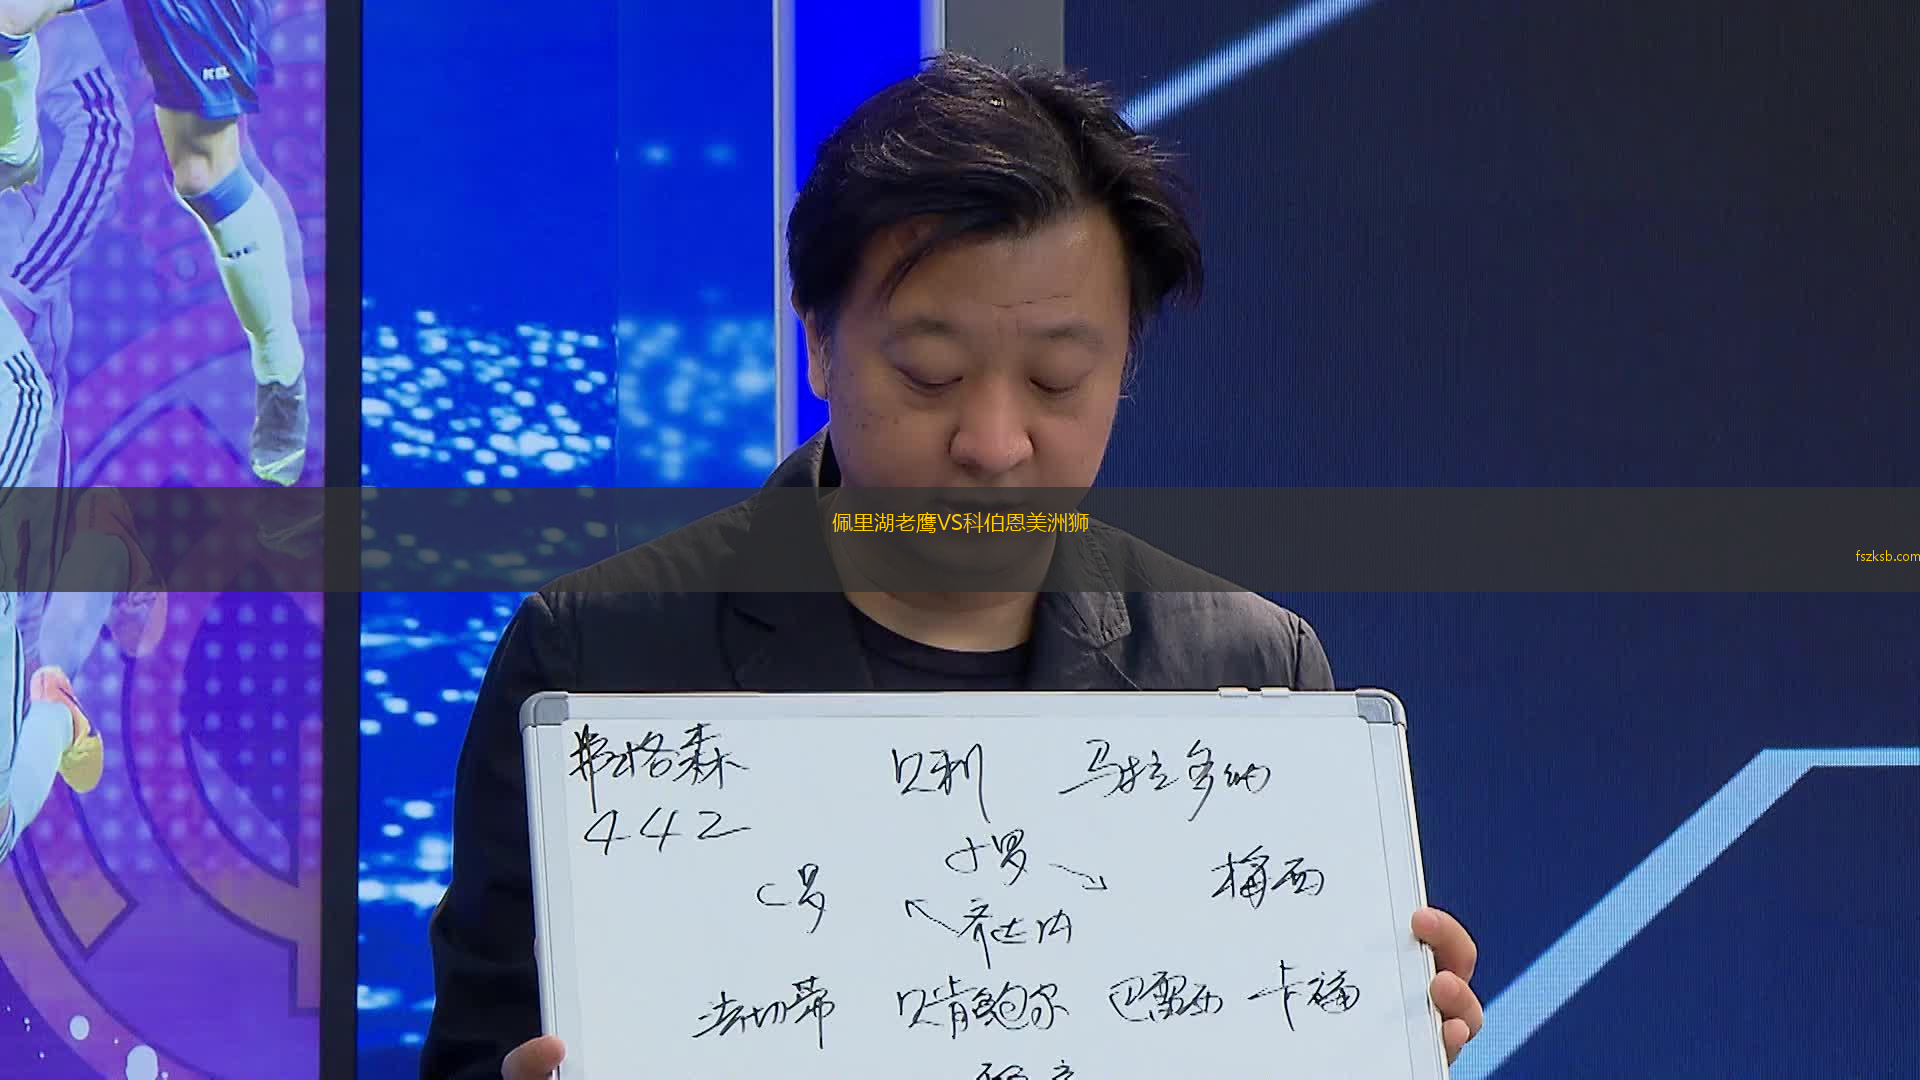 佩里湖老鹰VS科伯恩美洲狮
fszksb.com
弗格森 贝利 马拉多纳
442
小罗
C罗 梅西
齐达内
法切蒂 贝肯鲍尔 巴雷西 卡福